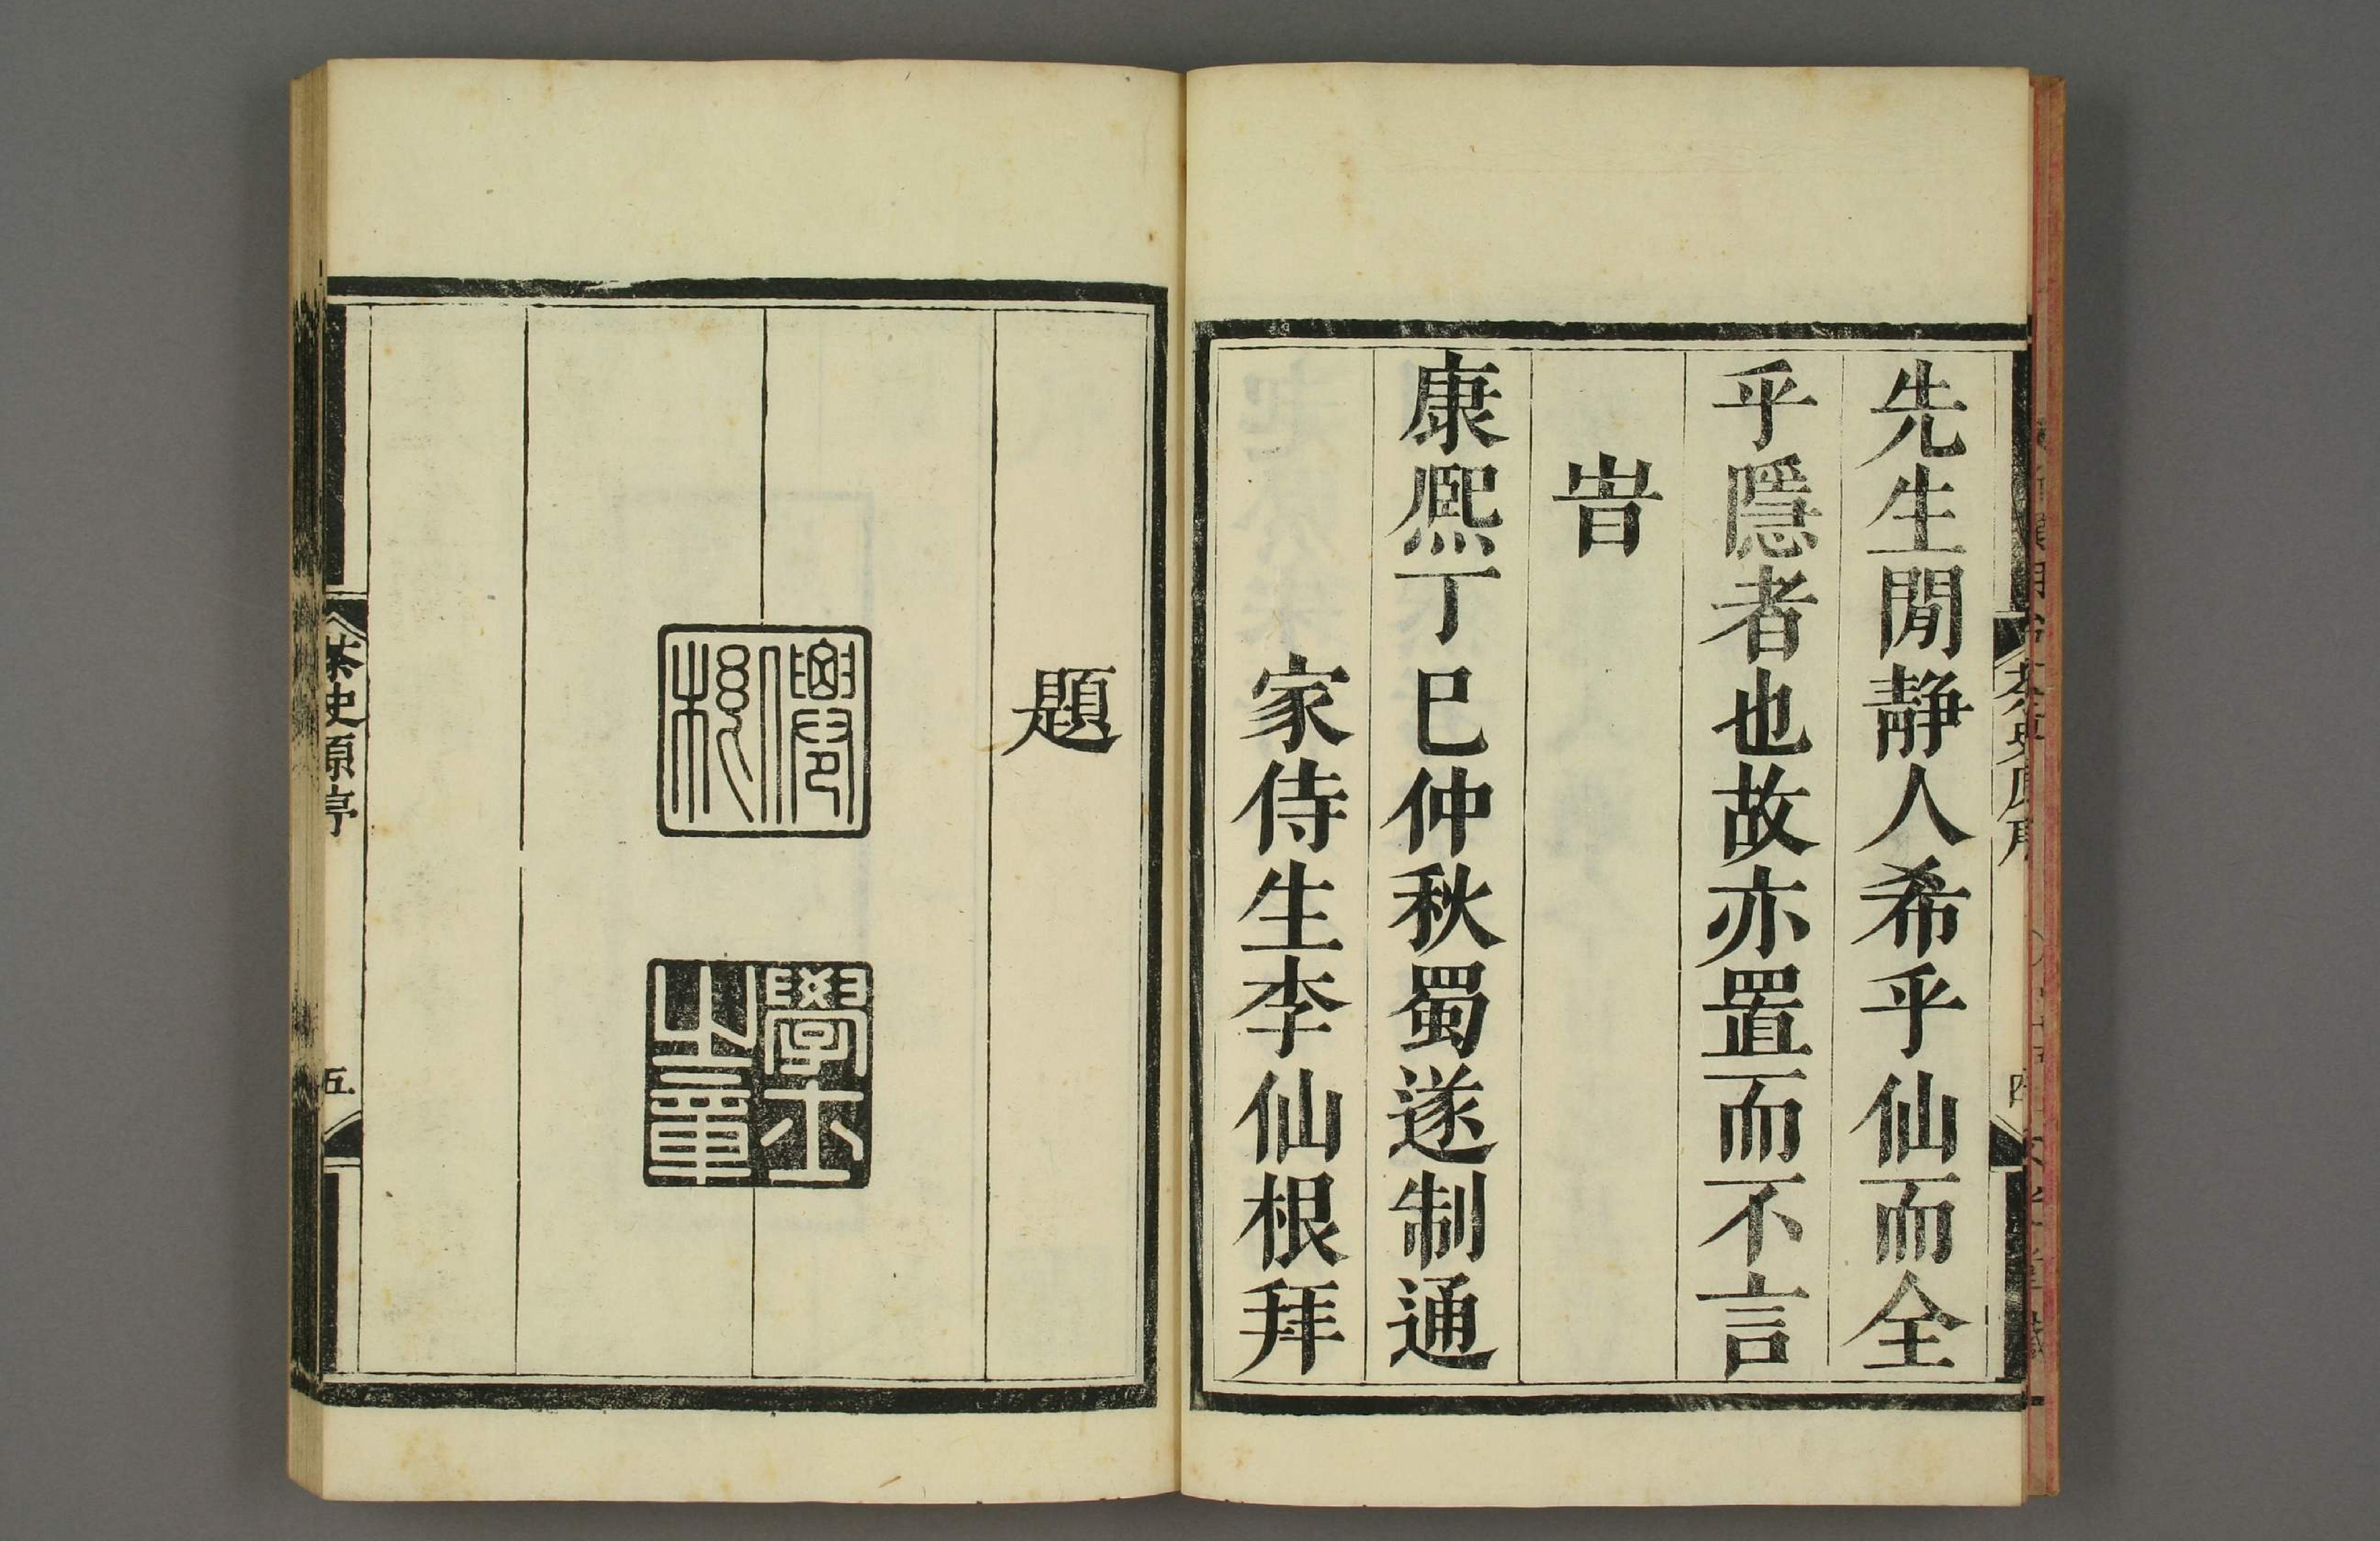 先生閒静人希乎仙而全
乎隱者也故亦置而不言
旹
康熈丁巳仲秋蜀遂制通
家侍生李仙根拜
題
學士
之章
茶史原序
五